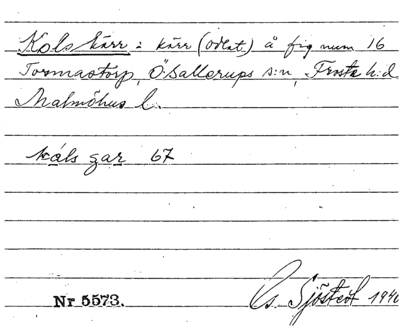 Kolskärr: kärr (odlat.) å fig num 16
Tormastorp, Ö Sallerups s:n, Frosta h:d
Malmöhus l.
kåls gar 67
Nr 5573.
Sjöstedt 1940